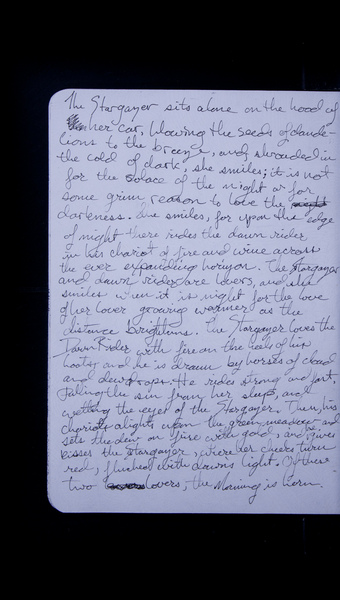 The Stargazer sits alone on the hood of
her car, blowing the seeds of dande-
lions to the breeze, and, shrouded in
the cold of dark, she smiles; it is not
for the solace of the night or for
some grim reason to love the
darkness. She smiles, for upon the edge
of night there rides the dawn rider
in his chariot of fire and wine across
the ever expanding horizon. The Stargazer
and dawn rider are lovers, and she
smiles when it is night for the love
of her lover growing warmer as the
distance brightens. The Stargazer loves the
Dawn Rider with fire on the heels of his
boots, and he is drawn by horses of cloud
and dewdrops. He rides strong and fast,
taking the sun from her sleep, and
wetting the eyes of the Stargazer. Then, his
chariot alights upon the green meadow and
sets the dew on fire with gold, and he gives
kisses the stargazer, where her cheeks turn
red, flushed with dawn's light. Of these
two lovers, the Morning is born.